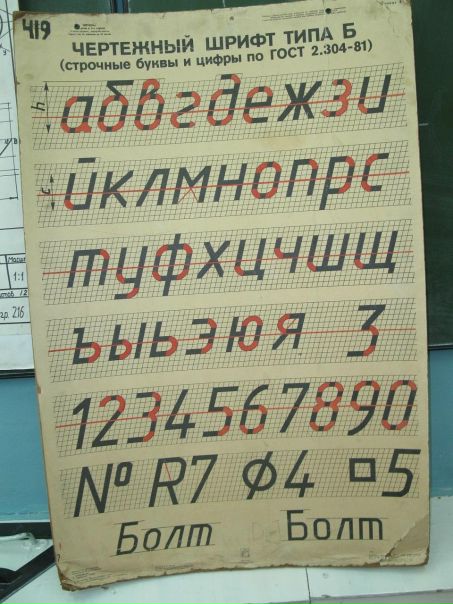 419
ЧЕРТЕЖНЫЙ ШРИФТ ТИПА Б
(строчные буквы и цифры по ГОСТ 2.304-81)
h
абвгдежзи
c
йклмнопрс
туфхцчшщ
ъыьэюя 3
1234567890
№ R7 ⌀4 □5
Болт Болт
Масш
1:1
гр. 216